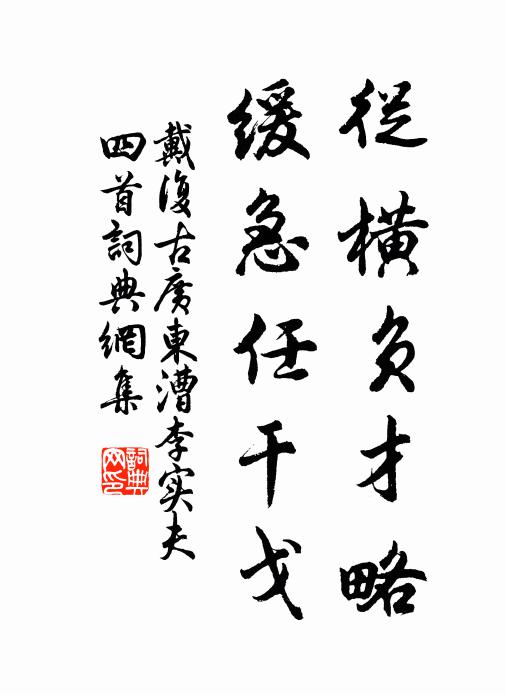 從橫負才略
緩急任干戈
戴復古廣東漕李实夫
四首詞典網集
詞典
网印